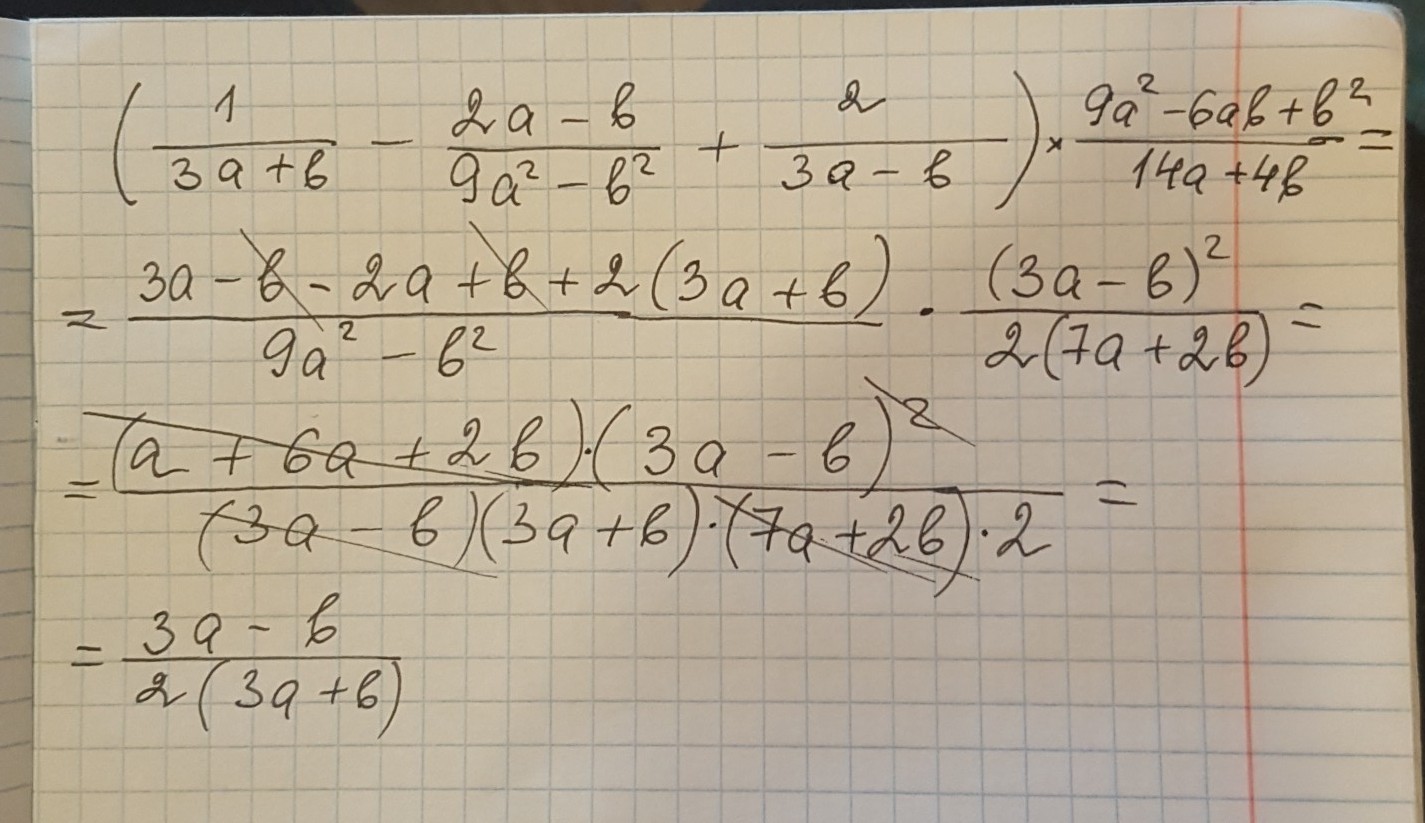 (1/(3a+b) - (2a-b)/(9a²-b²) + 2/(3a-b)) × (9a²-6ab+b²)/(14a+4b) =
= (3a-b-2a+b+2(3a+b))/(9a²-b²) · (3a-b)²/(2(7a+2b)) =
= ((a+6a+2b)·(3a-b)²)/((3a-b)(3a+b)·(7a+2b)·2) =
= (3a-b)/(2(3a+b))